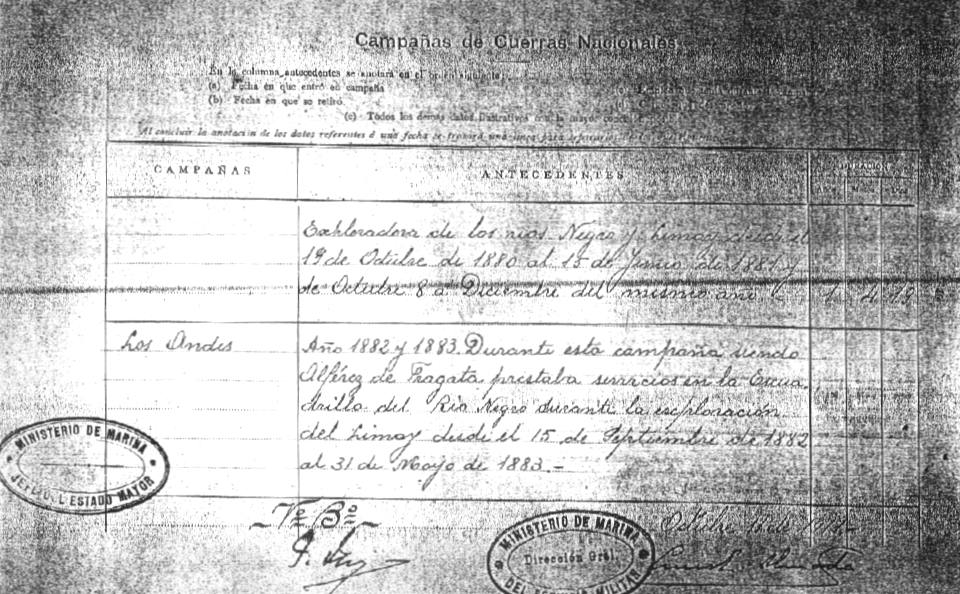 Campañas de Guerras Nacionales
En la columna antecedentes se anotará en el orden siguiente:
(a) Fecha en que entró en campaña
(b) Fecha en que se retiró
(c) Todos los demás datos ilustrativos con la mayor
Al concluir la anotación de los datos referentes á una fecha se trazará una línea para
CAMPAÑAS
ANTECEDENTES
Exploradora de los rios Negro y Limay desde el
19 de Octubre de 1880 al 15 de Junio de 1881 y
de Octubre 8 a Diciembre del mismo año.
Los Andes
Año 1882 y 1883. Durante esta campaña siendo
Alférez de Fragata prestaba servicios en la Escua
drilla del Rio Negro durante la exploración
del Limay desde el 15 de Septiembre de 1882
al 31 de Mayo de 1883.-
MINISTERIO DE MARINA
ESTADO MAYOR
Vº Bº
MINISTERIO DE MARINA
Dirección Gral.
DEL MILITAR
Octubre de